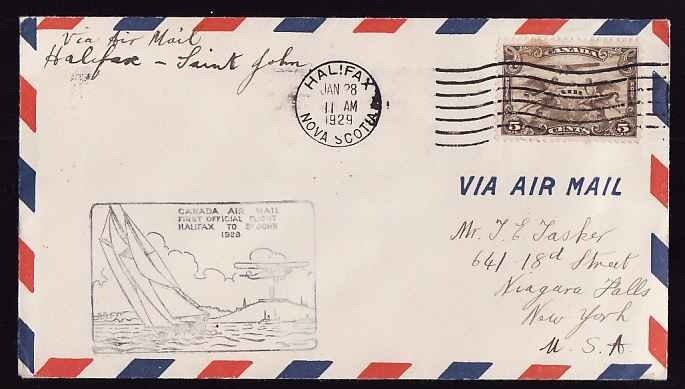 Via Air Mail
Halifax - Saint John
HALIFAX
JAN 28
11 AM
1929
NOVA SCOTIA
CANADA
5 CENTS 5
VIA AIR MAIL
CANADA AIR MAIL
FIRST OFFICIAL FLIGHT
HALIFAX TO ST JOHN
1929
Mr. T. E. Tasker
641-18th Street
Niagara Falls
New York
U.S.A.